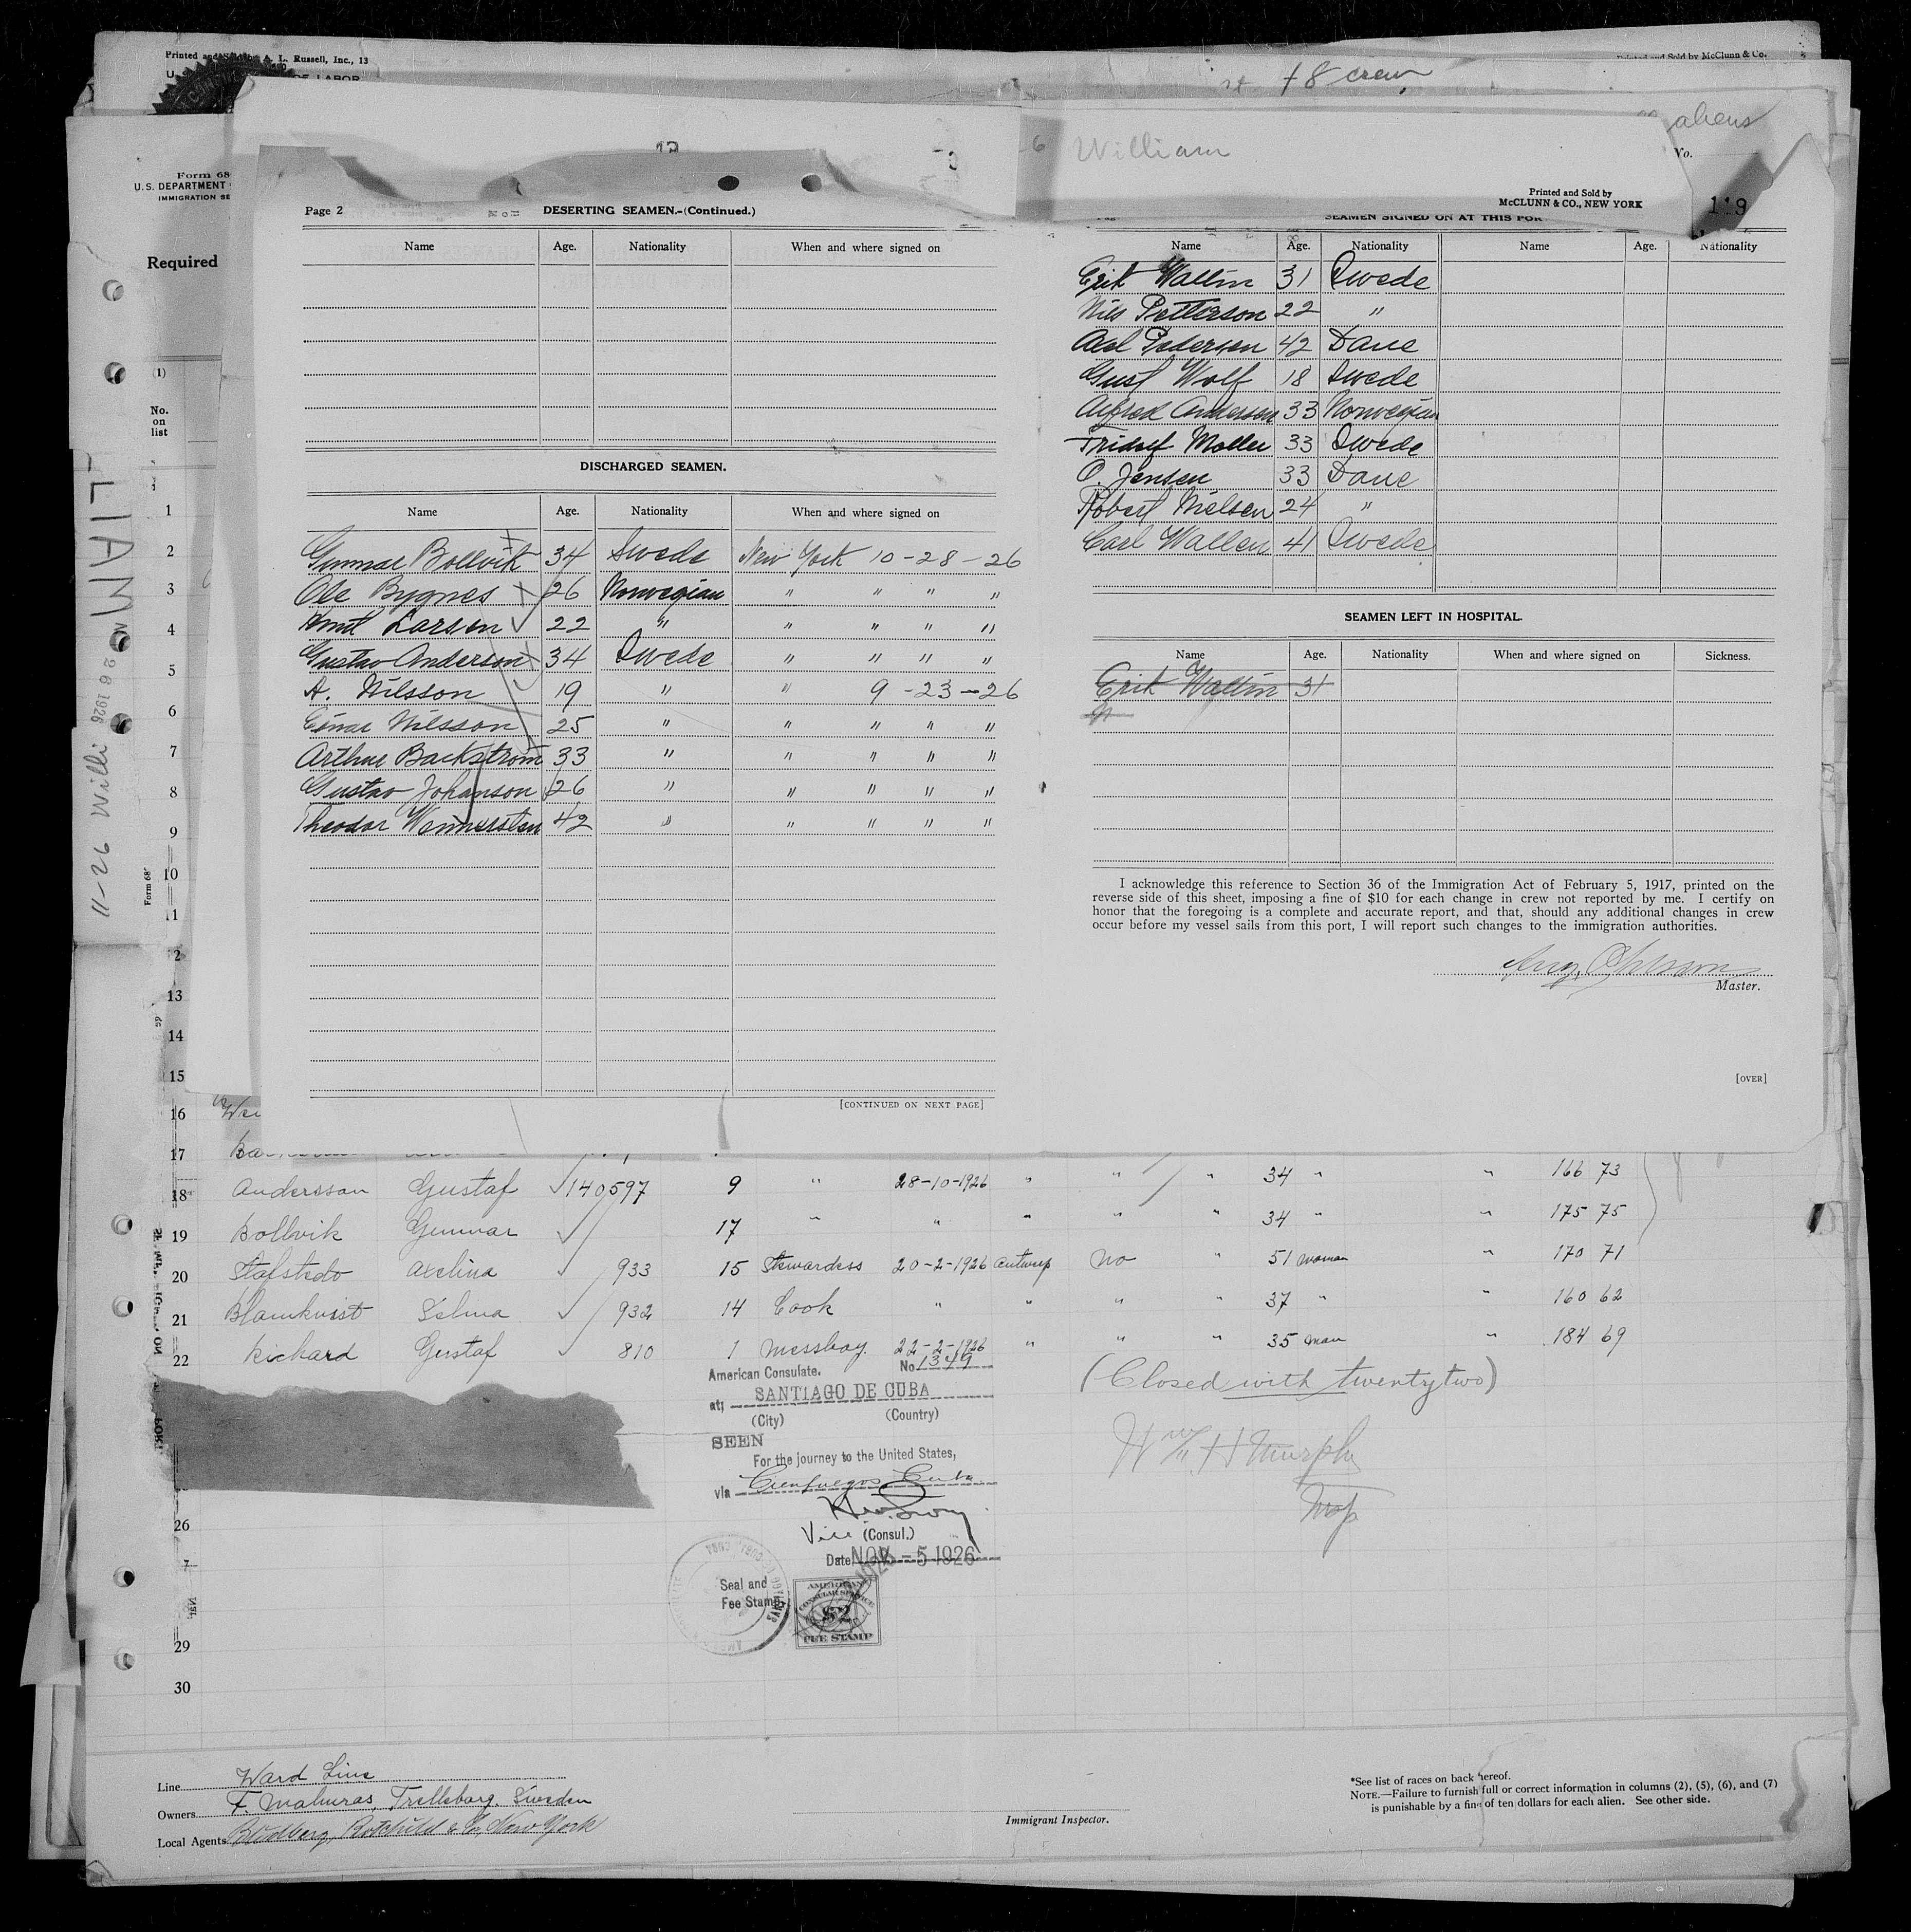 Printed and Sold by A. L. Russell, Inc., 13
Printed and Sold by McClunn & Co.
+ 8 crew
aliens
William
No.
Form 68
U. S. DEPARTMENT
IMMIGRATION SE
Required
Printed and Sold by
McCLUNN & CO., NEW YORK
119
Page 2
DESERTING SEAMEN.-(Continued.)
Name Age. Nationality When and where signed on
DISCHARGED SEAMEN.
Name Age. Nationality When and where signed on
Gunnar Bollvik 34 Swede New York 10-28-26
Ole Bygnes 26 Norwegian " " " "
Knut Larsen 22 " " " " "
Gustav Anderson 34 Swede " " " "
A. Nilsson 19 " " 9-23-26
Einar Nilsson 25 " " " " "
Arthur Backstrom 33 " " " " "
Gustav Johanson 26 " " " " "
Theodor Wennersten 42 " " " " "
[CONTINUED ON NEXT PAGE]
SEAMEN SIGNED ON AT THIS POR
Name Age. Nationality Name Age. Nationality
Erik Wallin 31 Swede
Nils Petterson 22 "
Axel Pedersen 42 Dane
Gust Wolf 18 Swede
Alfred Andersen 33 Norwegian
Fridolf Moller 33 Swede
O. Jensen 33 Dane
Robert Nielsen 24 "
Carl Wallen 41 Swede
SEAMEN LEFT IN HOSPITAL.
Name Age. Nationality When and where signed on Sickness.
Erik Wallin 31
I acknowledge this reference to Section 36 of the Immigration Act of February 5, 1917, printed on the
reverse side of this sheet, imposing a fine of $10 for each change in crew not reported by me. I certify on
honor that the foregoing is a complete and accurate report, and that, should any additional changes in crew
occur before my vessel sails from this port, I will report such changes to the immigration authorities.
Master.
[OVER]
(1)
No.
on
list
1
2
3
4
5
6
7
8
9
10
11
2
13
14
15
LIAM
26 1926
11-26 Willi
Form 68
16
17
18 Andersson Gustaf 140597 9 " 28-10-1926 " " " 34 " " 166 73
19 Bollvik Gunnar 17 " " " " " 34 " " 175 75
20 Stafstedo Axelina 933 15 Stewardess 20-2-1926 Antwerp no " 51 woman " 170 71
21 Blamkvist Selma 932 14 Cook " " " " 37 " " 160 62
22 Richard Gustaf 810 1 messboy 22-2-1926 " " " 35 man " 184 69
(Closed with twentytwo)
Wm H Murphy
American Consulate.
No 1349
at; SANTIAGO DE CUBA
(City) (Country)
SEEN
For the journey to the United States,
via Cienfuegos Cuba
Vice (Consul.)
Date NOV - 5 1926
Seal and
Fee Stamp
AMERICAN
CONSULAR SERVICE
$2
FEE STAMP
26
7
29
30
Line Ward Line
Owners F. Malmros, Trelleborg, Sweden
Local Agents
Immigrant Inspector.
*See list of races on back hereof.
NOTE.—Failure to furnish full or correct information in columns (2), (5), (6), and (7)
is punishable by a fine of ten dollars for each alien. See other side.